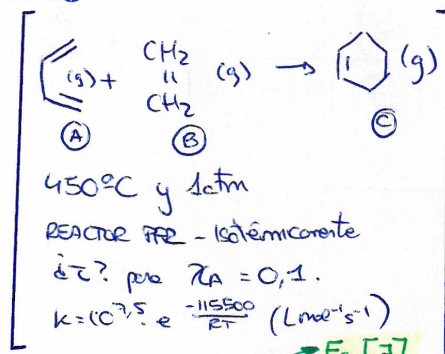 CH2
(g) + || (g) → (g)
CH2
A B C
450ºC y 1atm
REACTOR PFR - Isotérmicamente
¿τ? para XA = 0,1.
K = 10^7,5 · e^(-115500/RT) (L mol^-1 s^-1)